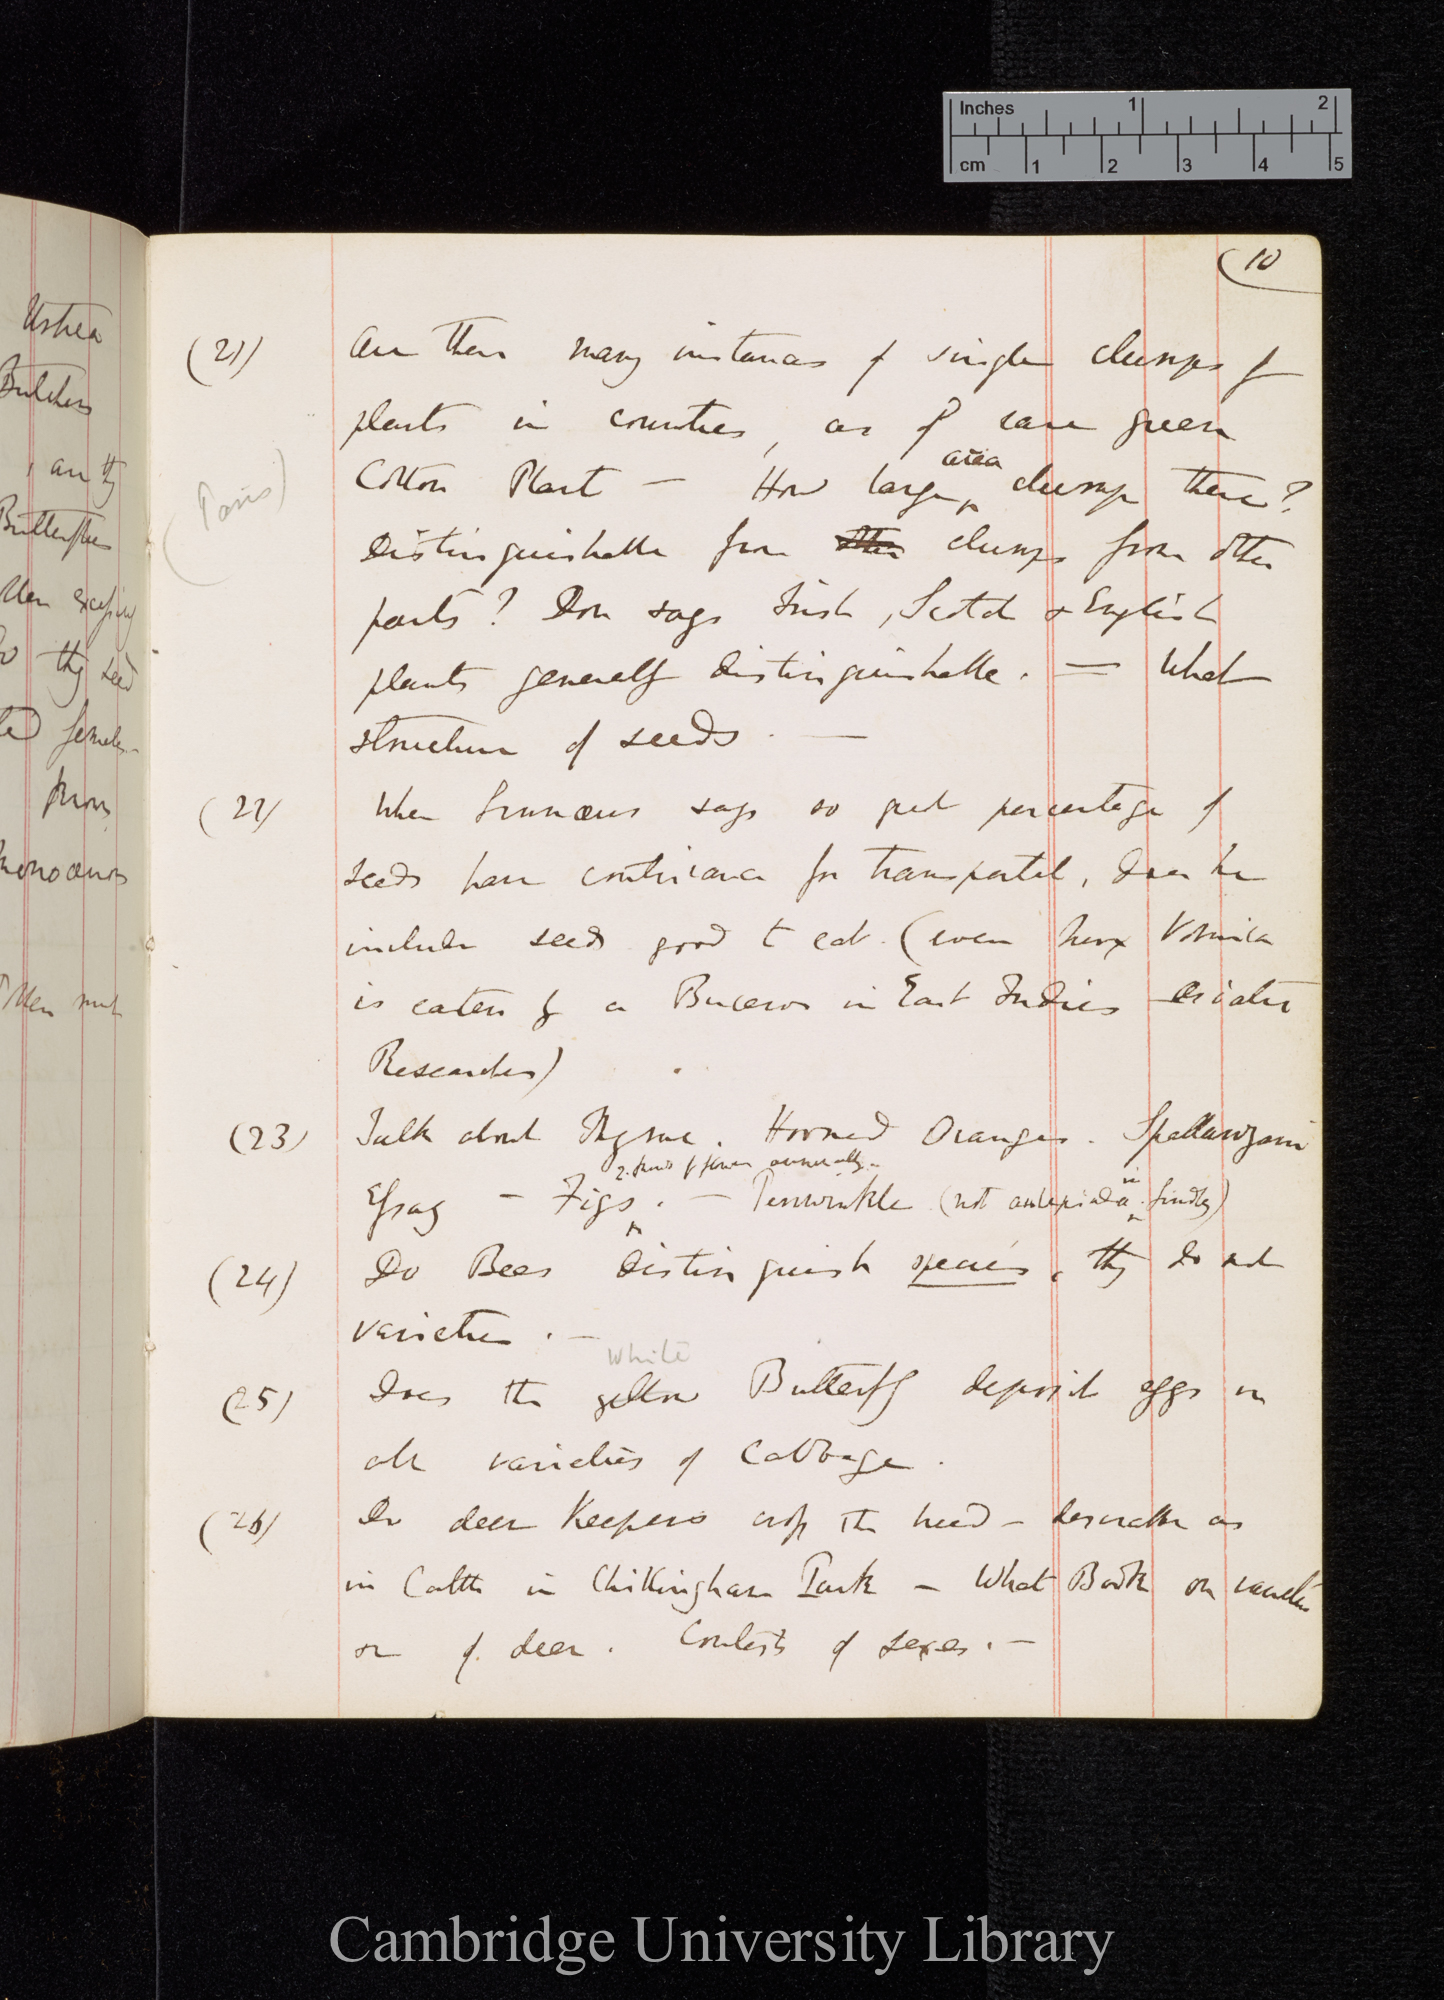 Inches 1 2
cm 1 2 3 4 5
10
(21) Are there many instances of single clumps of
plants in counties, as of rare green
Cotton Plant — How large area clump there?
(Paris)
distinguishable from other clumps from other
parts? Don says Irish, Scotch & English
plants generally distinguishable. — What
structure of seeds. —
(22) When Linnaeus says so great percentage of
seeds have contrivance for transportal, does he
include seeds good to eat. (even nux vomica
is eaten by a Buceros in East Indies Asiatic
Researches)
(23) Talk about Thyme. Horned Oranges. Spallanzani
2. kinds of flower
Essay — Figs. — Periwinkle (not in Lindley)
(24) Do Bees distinguish species, they do not
varieties. —
white
(25) Does the yellow Butterfly deposit eggs on
all varieties of Cabbage.
(26) Do deer Keepers crop the herd — as
in Cattle in Chillingham Park — What Book on varieties
or of deer. Contests of sexes. —
Ushea
Butchers
, are they
Butterflies
Do they seed
females
monoceros
Cambridge University Library